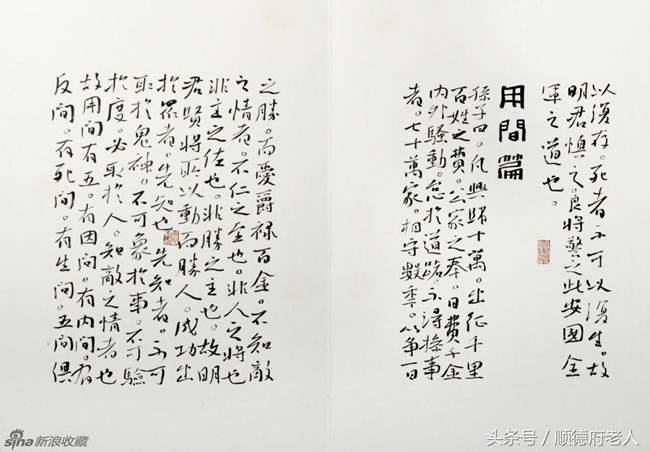 以復存。死者不可以復生。故
明君慎之。良將警之此安國全
軍之道也。
用間篇
孫子曰。凡興師十萬。出征千里
百姓之費。公家之奉。日費千金
內外騷動。怠於道路。不得操事
者。七十萬家。相守數年。以爭一日
之勝。而愛爵祿百金。不知敵
之情者。不仁之至也。非人之將也
非主之佐也。非勝之主也。故明
君賢將所以動而勝人。成功出
於眾者。先知也先知者。不可
取於鬼神。不可象於事。不可驗
於度。必取於人。知敵之情者也
故用間有五。有因間。有內間。有
反間。有死間。有生間。五間俱
sina 新浪收藏
头条号 / 顺德府老人